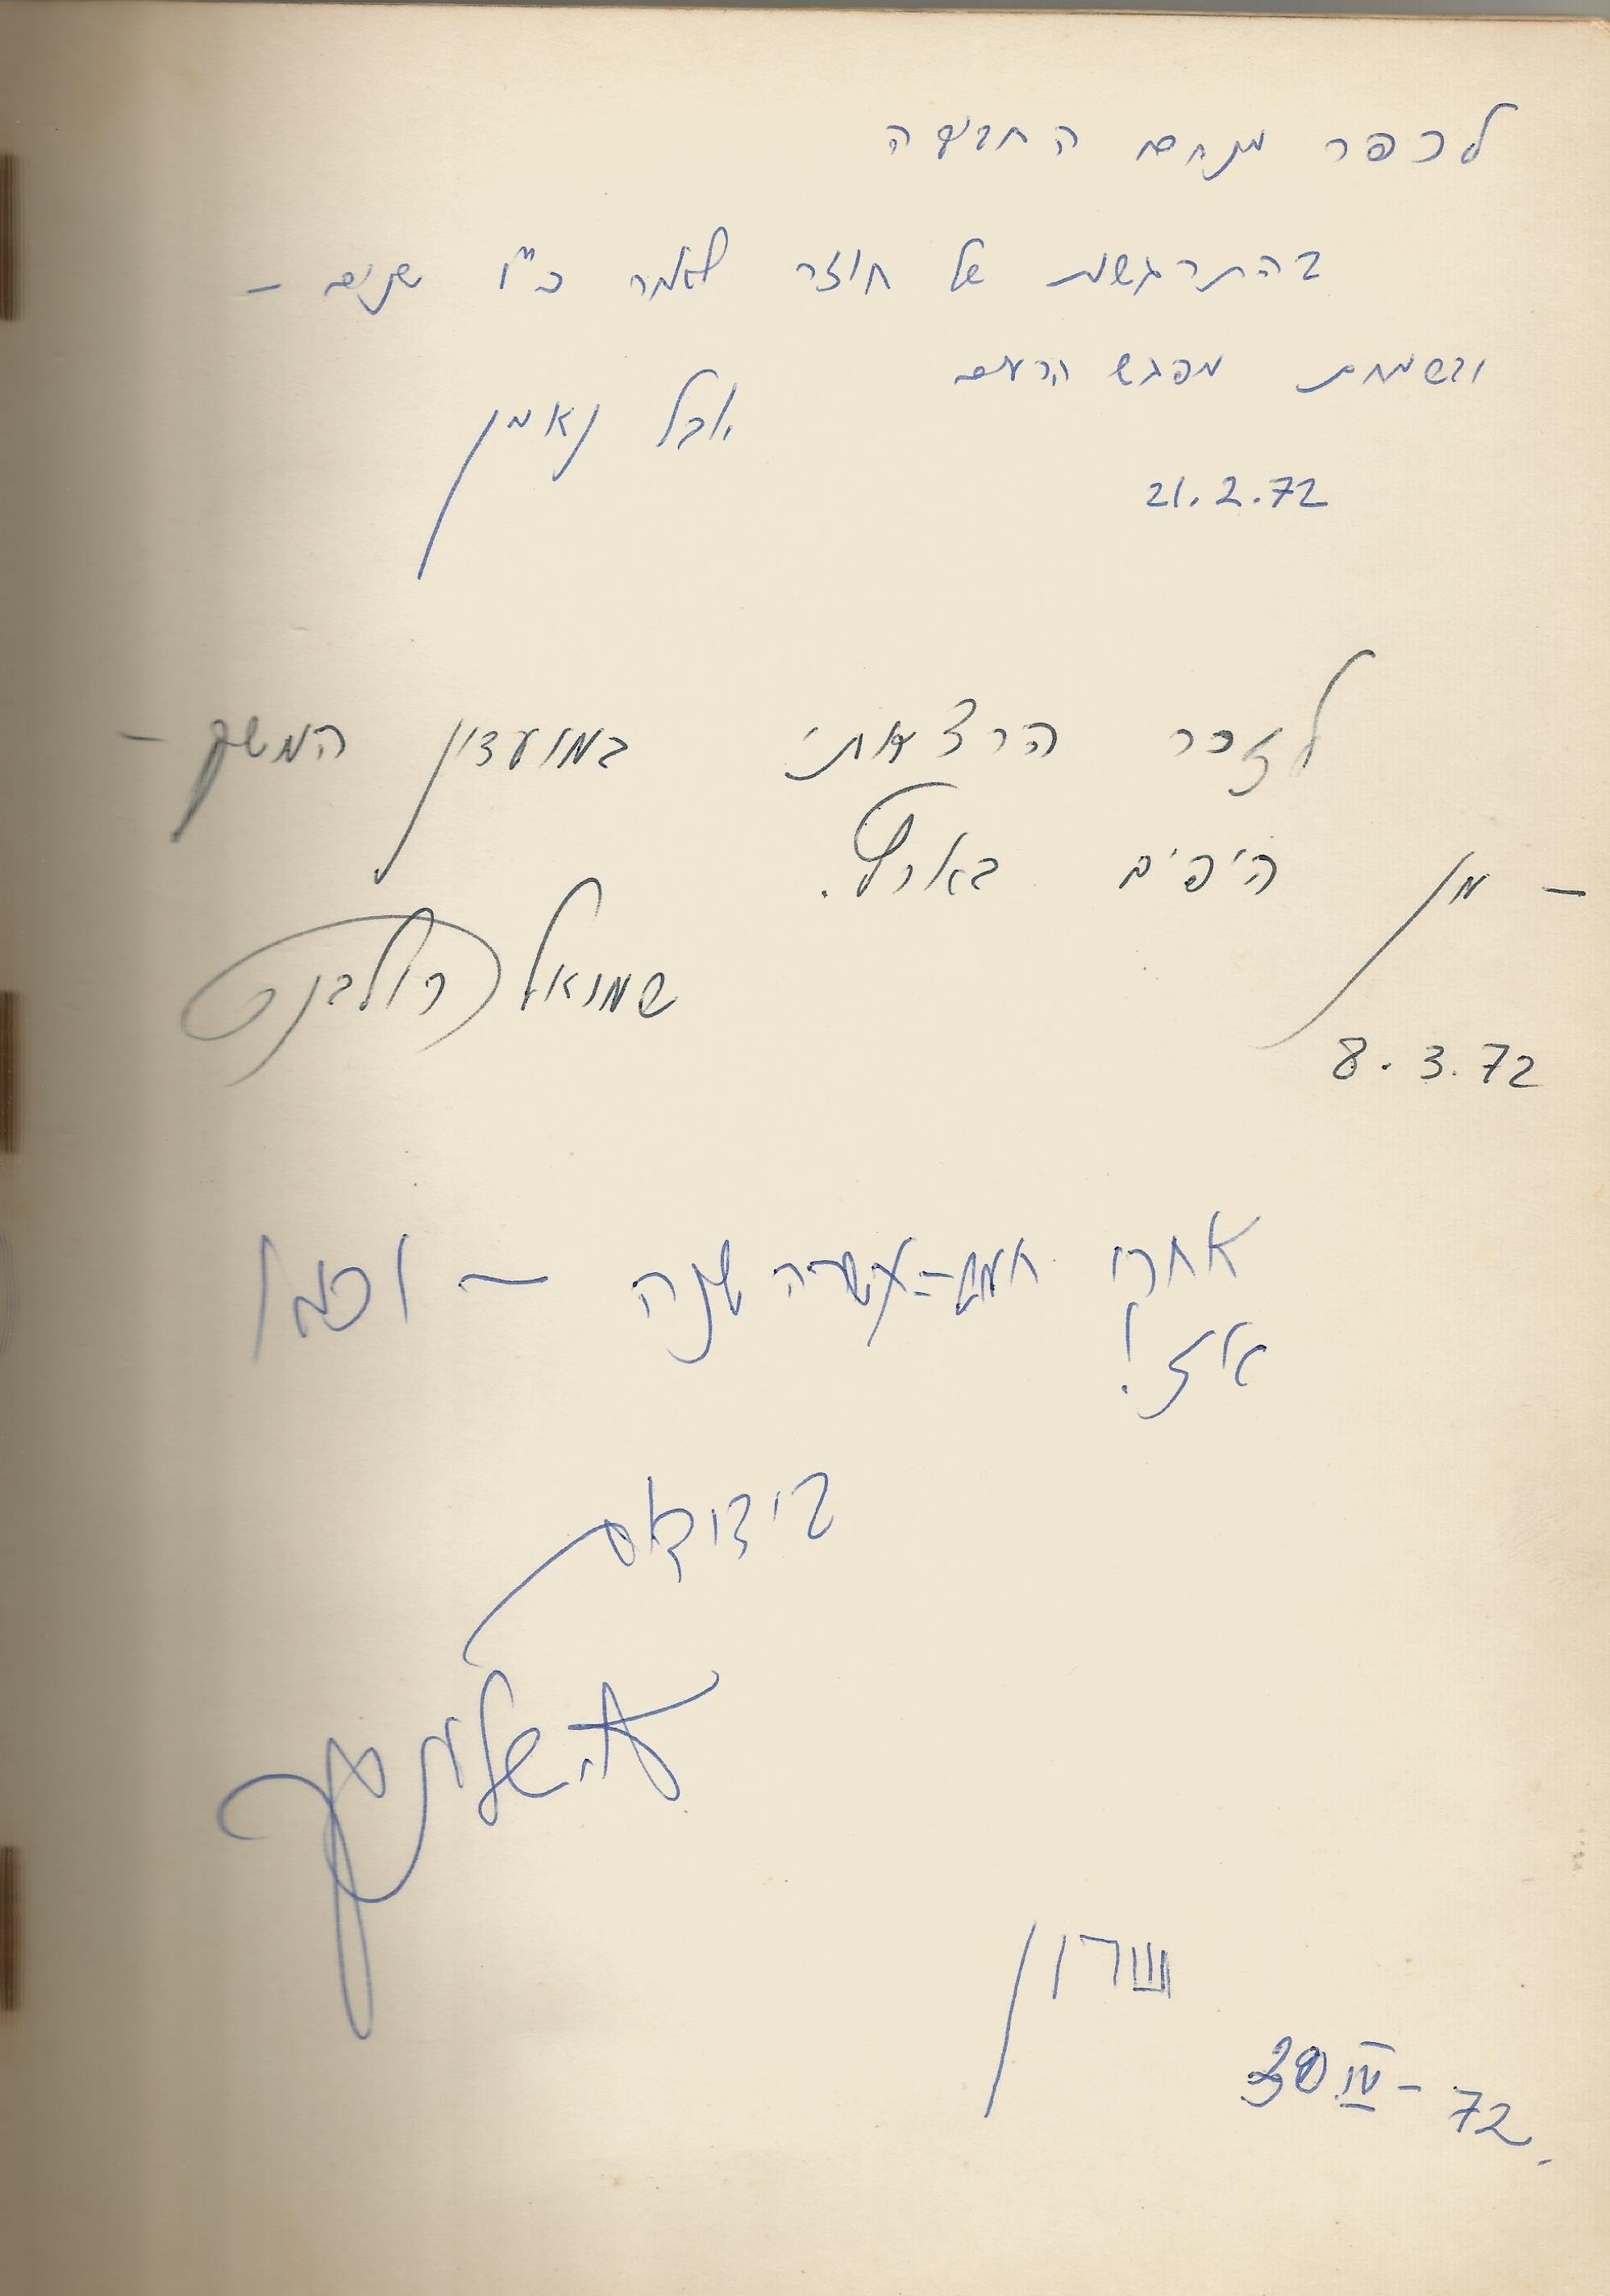 לכפר מנחם החביבה
בהתרגשות של חוזר לאחר כ"ו שנים –
ובשמחת מפגש הרעים
יובל נאמן
21.2.72
לזכר הרצאתי במועדון המשק –
– מן היפים בארץ.
שמואל רולבנט
8.3.72
אחרי חמש-עשרה שנה – וכמו
אז!
בידידות
א. שלונסקי
שרון
30 IV – 72.